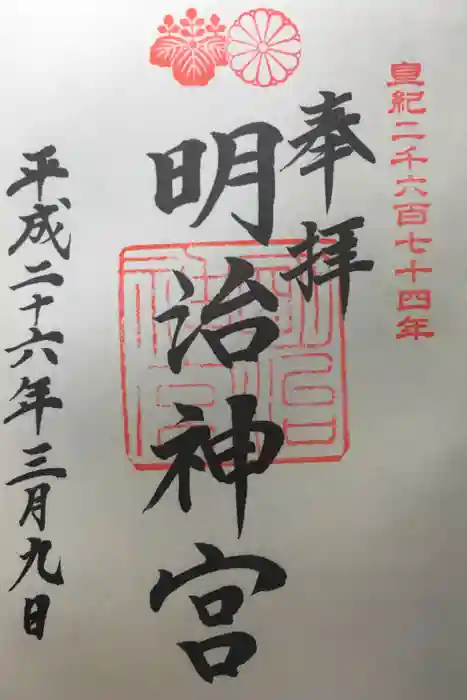 皇紀二千六百七十四年
奉拝
明治神宮
平成二十六年三月九日